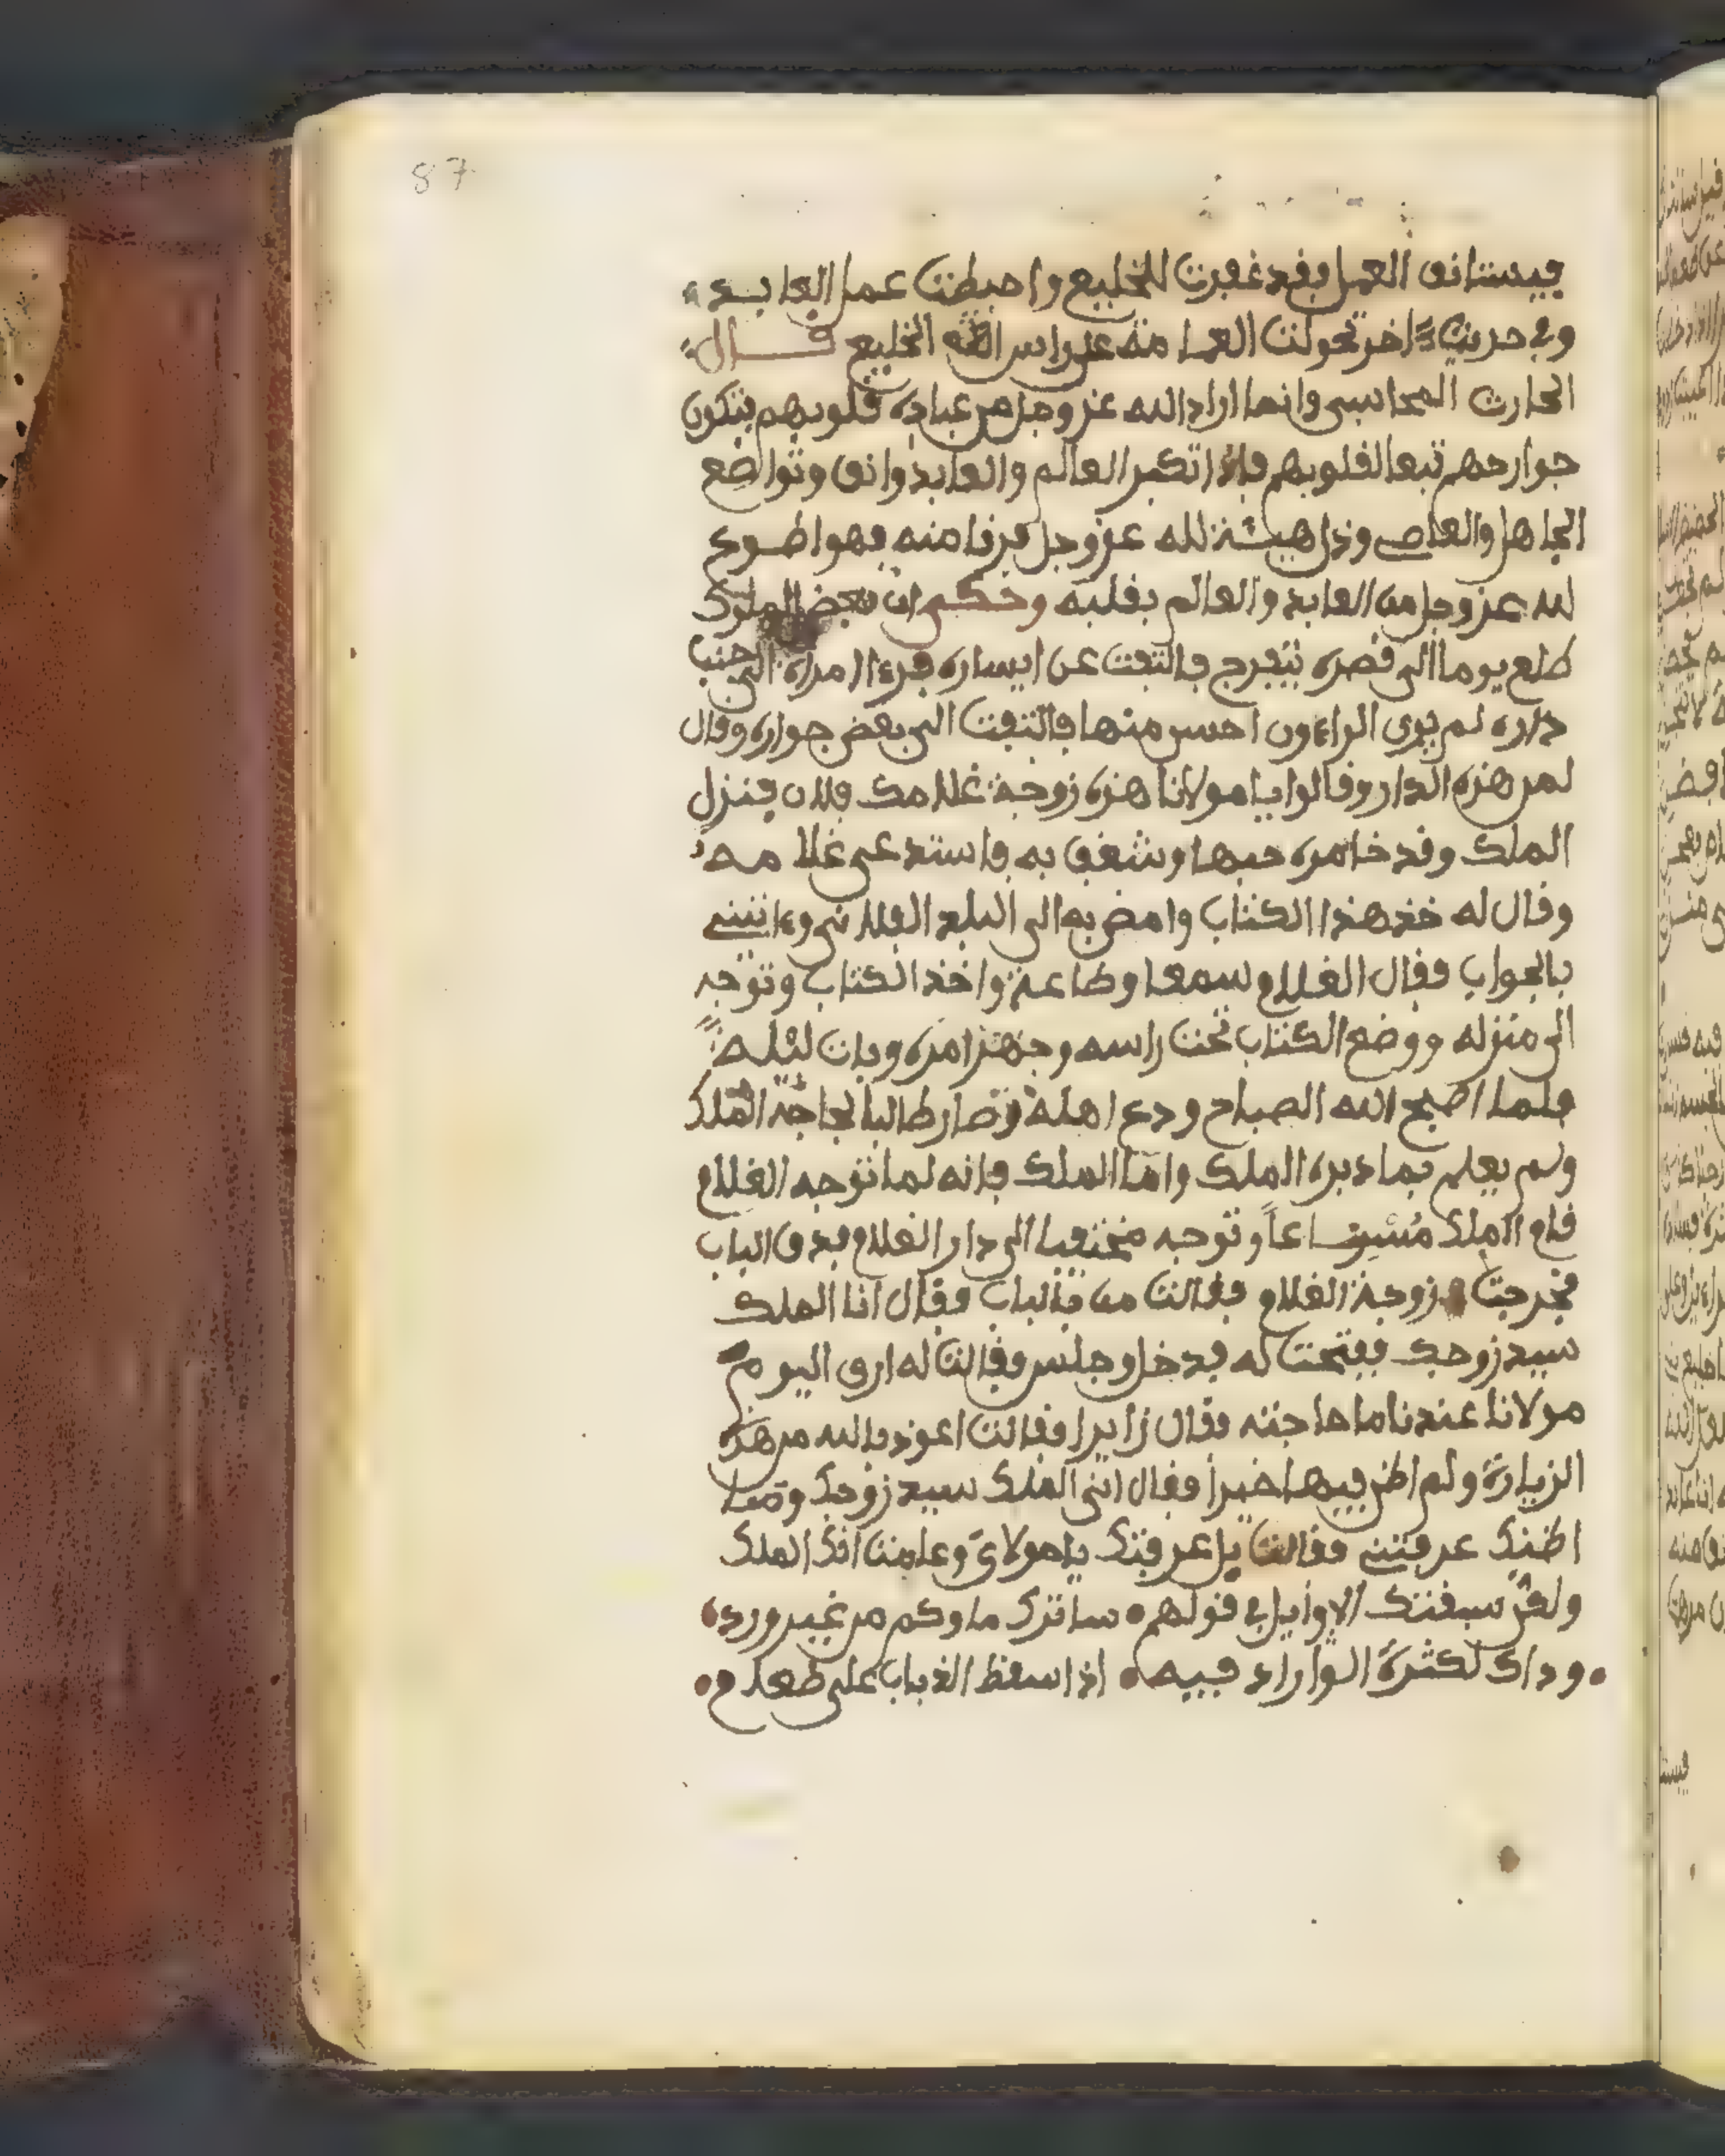 87
فيستانف العمل فقد غفرت للخليع واحبطت عمل العابد
وفي حديث ءاخر تحولت الغمامة على راس الخليع قال
الحارث المحاسبي وانما اراد الله عز وجل من عباده قلوبهم بتكون
جوارحهم تبعا لقلوبهم فاذا تكبر العالم والعابد وانف وتواضع
الجاهل والعاصي وذل هيبة لله عز وجل فرقا منه فهو اطوع
لله عز وجل من العابد والعالم بقلبه وحكي ان بعض الملوك
طلع يوما الى قصره يتفرج فالتفت عن ايساره فرءا امراة الى جنب
داره لم يرى الراءون احسن منها فالتفت الى بعض جواره وقال
لمن هذه الدار وقالوا يا مولانا هذه زوجة غلامك فلان فنزل
الملك وقد خامره حبها وشغف به فاستدعى غلامه
وقال له خذ هذا الكتاب وامض به الى البلد الفلاني وءاتيني
بالجواب فقال الغلام سمعا وطاعة واخذ الكتاب وتوجه
الى منزله ووضع الكتاب تحت راسه وجهز امره وبات ليله
فلما اصبح الله الصباح ودع اهله وصار طالبا لحاجة الملك
ولم يعلم بما دبره الملك واما الملك فانه لما توجه الغلام
قام الملك مسرعا وتوجه مختفيا الى دار الغلام فدق الباب
فخرجت زوجة الغلام فقالت من بالباب فقال انا الملك
سيد زوجك ففتحت له فدخل وجلس فقالت له ارى اليوم
مولانا عندنا ما حاجته فقال زايرا فقالت اعوذ بالله من هذه
الزيارة ولم اظن فيها خيرا فقال اني الملك سيد زوجك وما
اظنك عرفتني فقالت بل عرفتك يا مولاي وعلمت انك الملك
ولقد سبقتك الاوايل في قولهم • ساترك ماوكم من غير ورد
• وداك لكثرة الواراد فيه • اذا سقط الذباب على طعام •